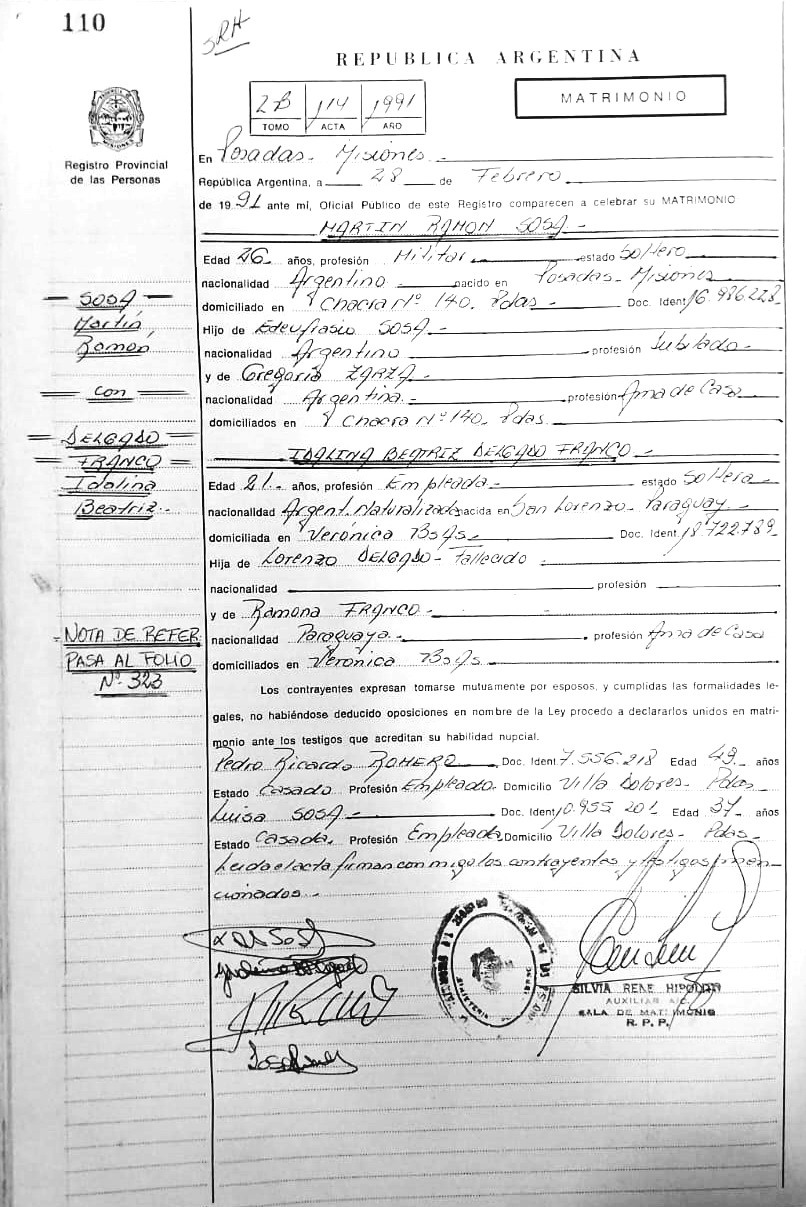 110
SRH
REPUBLICA ARGENTINA
2B 114 1991
TOMO ACTA AÑO
MATRIMONIO
Registro Provincial
de las Personas
En Posadas - Misiones
República Argentina, a 28 de Febrero
de 1991 ante mí, Oficial Público de este Registro comparecen a celebrar su MATRIMONIO
MARTIN RAMON SOSA
Edad 26 años, profesión Militar estado Soltero
nacionalidad Argentino nacido en Posadas - Misiones
domiciliado en Chacra Nº 140. Pdas Doc. Ident. 16.986.228
Hijo de SOSA
nacionalidad Argentino profesión Jubilado
y de Gregoria ZARZA
nacionalidad Argentina profesión Ama de Casa
domiciliados en Chacra Nº 140. Pdas.
IDALINA BEATRIZ DELGADO FRANCO
Edad 21 años, profesión Empleada estado Soltera
nacionalidad Argent. Naturalizada nacida en San Lorenzo - Paraguay
domiciliada en Verónica BsAs Doc. Ident. 18.722.789
Hija de Lorenzo DELGADO - Fallecido
nacionalidad profesión
y de Ramona FRANCO
nacionalidad Paraguaya profesión Ama de Casa
domiciliados en Verónica BsAs
Los contrayentes expresan tomarse mutuamente por esposos, y cumplidas las formalidades le-
gales, no habiéndose deducido oposiciones en nombre de la Ley procedo a declararlos unidos en matri-
monio ante los testigos que acreditan su habilidad nupcial.
Pedro Ricardo ROMERO Doc. Ident. 7.556.218 Edad 49 años
Estado Casado Profesión Empleado Domicilio Villa Dolores - Pdas
Luisa SOSA Doc. Ident. 10.955.201 Edad 37 años
Estado Casada Profesión Empleada Domicilio Villa Dolores - Pdas
Leida el acta firman conmigo los contrayentes y testigos men-
cionados
SOSA
Martín
Ramón
con
DELGADO
FRANCO
Idalina
Beatriz
NOTA DE REFER.
PASA AL FOLIO
Nº 323
SILVIA RENE HIPOLITO
AUXILIAR A/C.
SALA DE MATRIMONIO
R. P. P.